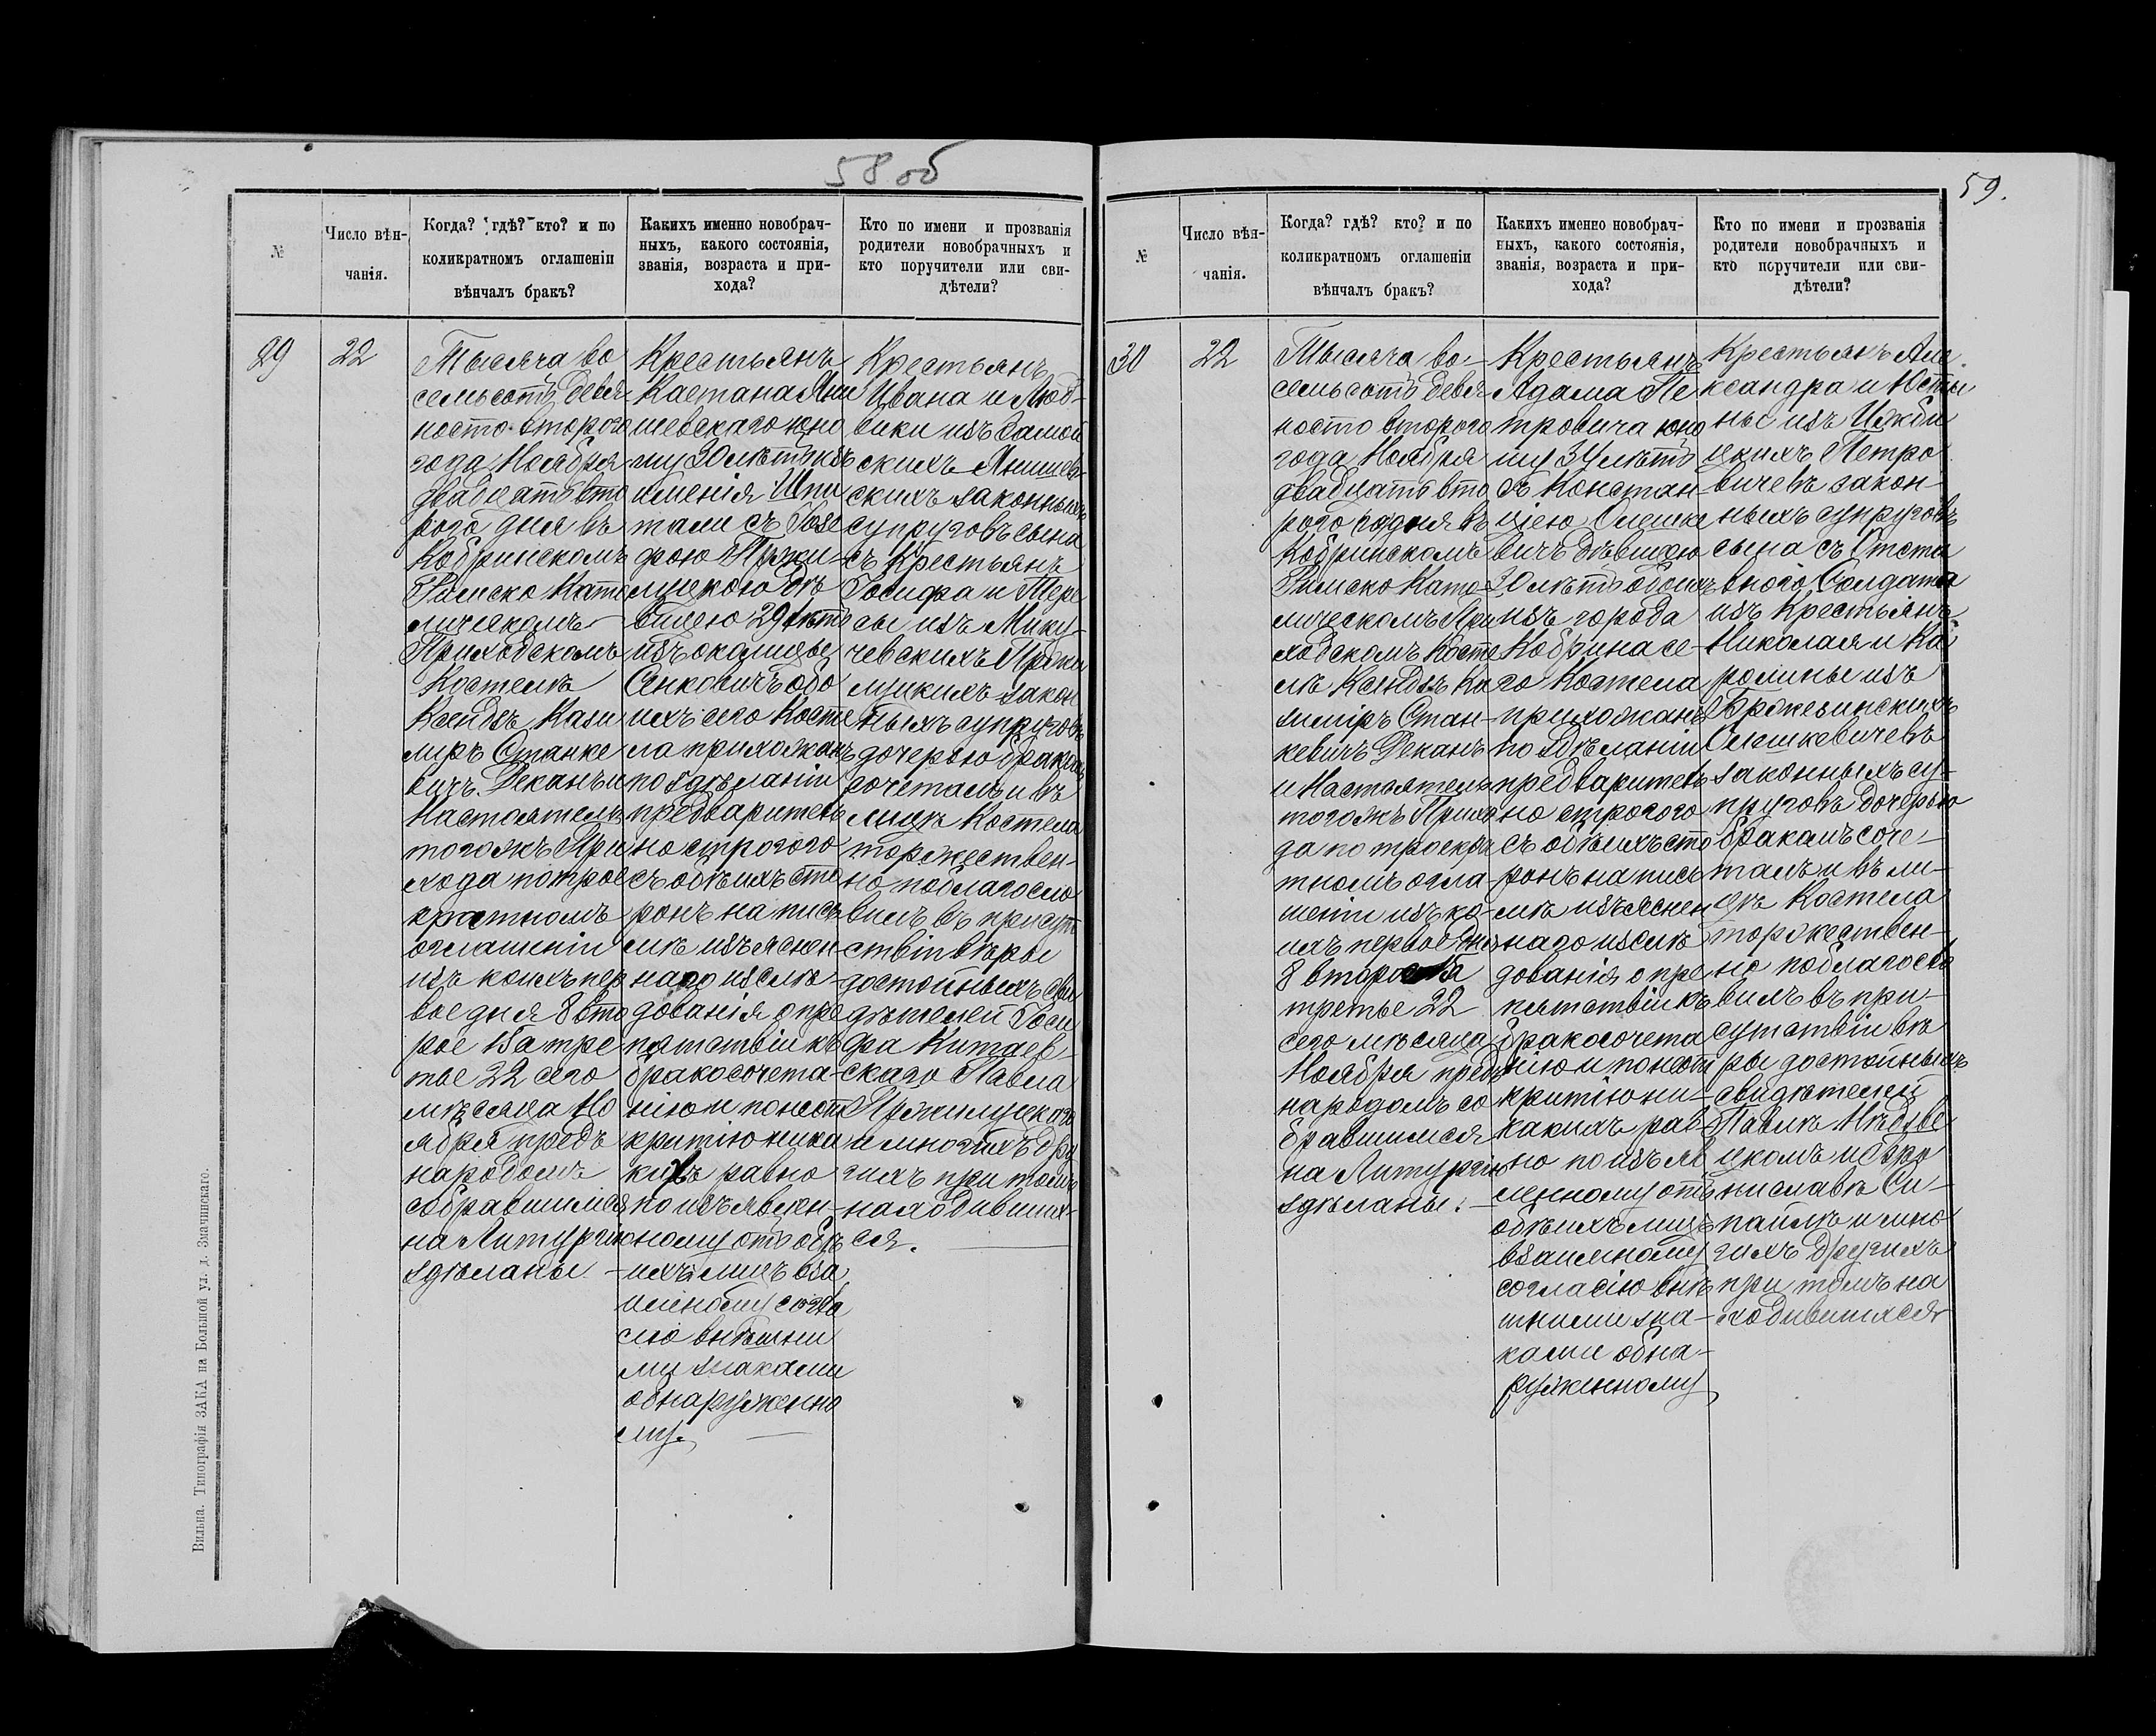 58 об
№
Число вѣн-
чанія.
Когда? гдѣ? кто? и по
коликратномъ оглашеніи
вѣнчалъ бракъ?
Какихъ именно новобрач-
ныхъ, какого состоянія,
званія, возраста и при-
хода?
Кто по имени и прозванія
родители новобрачныхъ и
кто поручители или сви-
дѣтели?
29
22
Тысяча во
семьсотъ девя
носто второго
года Ноября
двадцать вто
рого дня въ
Кобринскомъ
Римско Като
лическомъ
Приходскомъ
Костелѣ
Ксендзъ Кази
миръ Станке
вичъ Деканъ и
Настоятель
тогожъ При
хода по трое
кратномъ
оглашеніи
изъ коихъ пер
вое дня 8 вто
рое 15 а тре
тье 22 сего
мѣсяца Но
ября предъ
народомъ
собравшимся
на Литургію
зделаны
Крестьянъ
Каетана Яни
шевскаго юно
шу 30 лѣтъ изъ
имѣнія Шпи
тали съ Юзе
фою Пржи-
луцкою дѣ
вицею 29 лѣтъ
изъ околицы
Сянковичъ обо
ихъ сего Косте
ла прихожанъ
по здѣланіи
предваритель
но строгого
съ обѣихъ сто
ронъ на пись
мѣ изъяснен-
наго изслѣ-
дованія о пре
пятствіи къ
бракосочета-
нію и по неот
крытію ника
кихъ равно
по изъявлен-
ному отъ обѣ
ихъ лицъ вза
имному согла
сію внѣшни
ми знаками
обнаруженно
му.
Крестьянъ
Ивана и Люд-
вики изъ Самой
скихъ Янишев
скихъ законныхъ
супруговъ сына
съ Крестьянъ
Іосифа и Тере
сы изъ Мику
чевскихъ Пржи
луцкихъ закон
ныхъ супруговъ
дочерью бракомъ
сочеталъ и въ
лицѣ Костела
торжествен-
но поблагосло
вилъ въ присут
ствіи вѣры
достойныхъ сви
дѣтелей Іоси
фа Китаев-
скаго Павла
Пржилуцкаго
и многихъ дру
гихъ при томъ
находивших-
ся.
Вильна. Типографія ЗАКА на Большой ул. д. Змачинскаго.
59.
№
Число вѣн-
чанія.
Когда? гдѣ? кто? и по
коликратномъ оглашеніи
вѣнчалъ бракъ?
Какихъ именно новобрач-
ныхъ, какого состоянія,
званія, возраста и при-
хода?
Кто по имени и прозванія
родители новобрачныхъ и
кто поручители или сви-
дѣтели?
30
22
Тысяча во-
семьсотъ девя
носто второго
года Ноября
двадцать вто
рого дня въ
Кобринскомъ
Римско Като-
лическомъ При
ходскомъ Косте
лѣ Ксендзъ Ка
зиміръ Стан-
кевичъ Деканъ
и Настоятель
тогожъ Прихо
да по троекра
тномъ огла-
шеніи изъ ко-
ихъ первое дня
8 второе 15
третье 22
сего мѣсяца
Ноября предъ
народомъ со
бравшимся
на Литургію
зделаны.
Крестьянъ
Адама Пе
тровича юно
шу 34 лѣтъ
съ Констан-
ціею Олешке
вичъ дѣвицею
30 лѣтъ обоихъ
изъ города
Кобрина се-
го Костела
прихожанъ
по здѣланіи
предваритель
но строгого
съ обѣихъ сто
ронъ на пись
мѣ изъяснен
наго изслѣ
дованія о пре
пятствіи къ
бракосочета
нію и по неот
крытію ни-
какихъ рав
но по изъяв
ленному отъ
обѣихъ лицъ
взаимному
согласію внѣ
шними зна-
ками обна-
руженному
Крестьянъ Але
ксандра и Юсты
ны изъ Ижби
цкихъ Петро
вичевъ закон-
ныхъ супруговъ
сына съ Отста
вного Солдата
изъ Крестьянъ
Николая и Ка
ролины изъ
Бржезинскихъ
Олешкевичевъ
законныхъ су-
пруговъ дочерью
бракомъ соче-
талъ и въ ли-
цѣ Костела
торжествен-
но поблагосло
вилъ въ при-
сутствіи вѣ
ры достойныхъ
свидѣтелей
при томъ на
ходившихся